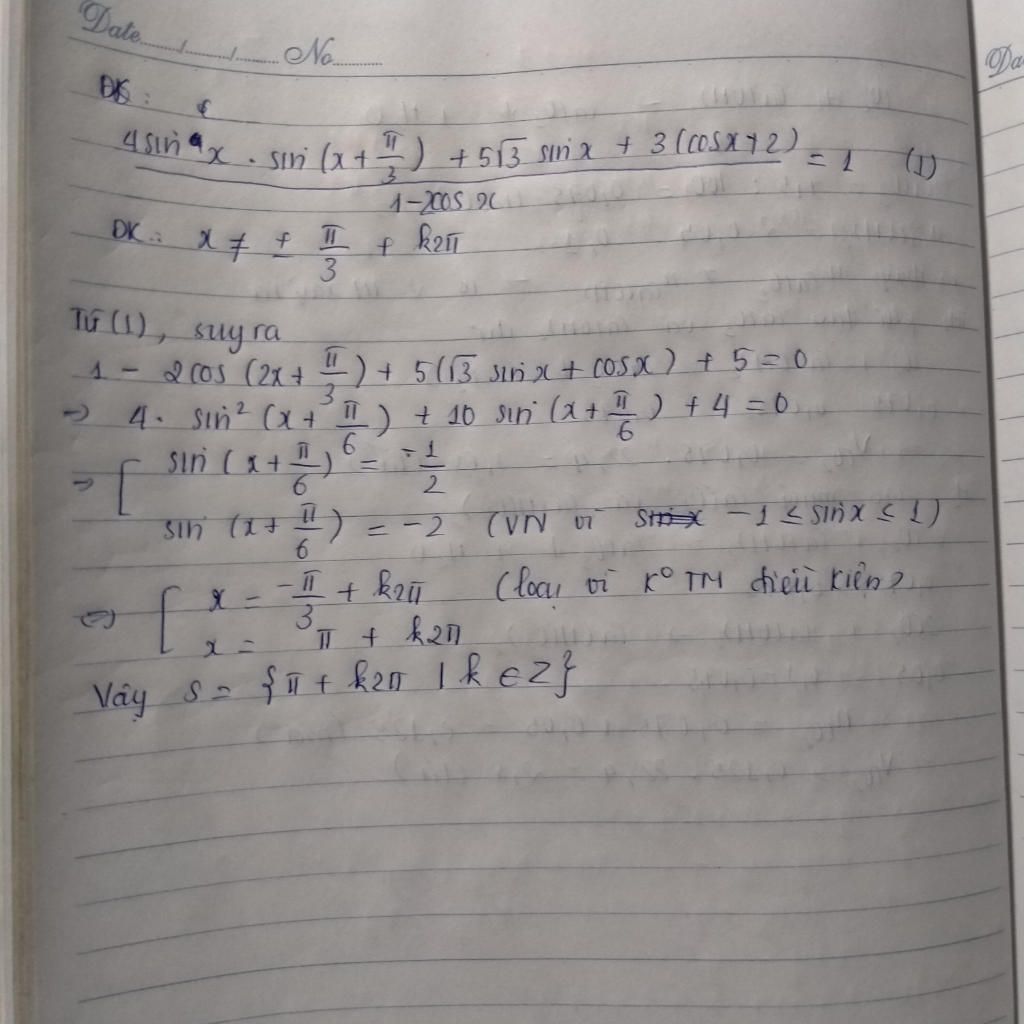 Date......./......../......... No...........
Da
ĐK:
4sin x . sin (x + π/3) + 5√3 sin x + 3 (cosx + 2) / 1 - 2cos x = 1 (1)
ĐK: x ≠ ± π/3 + k2π
Từ (1), suy ra
1 - 2cos (2x + π/3) + 5(√3 sin x + cosx) + 5 = 0
=> 4. sin² (x + π/6) + 10 sin (x + π/6) + 4 = 0
=> [ sin (x + π/6) = -1/2
sin (x + π/6) = -2 (VN vì -1 ≤ sin x ≤ 1)
<=> [ x = -π/3 + k2π (loại vì K° TM điều kiện)
x = π + k2π
Vậy S = {π + k2π | k ∈ Z}